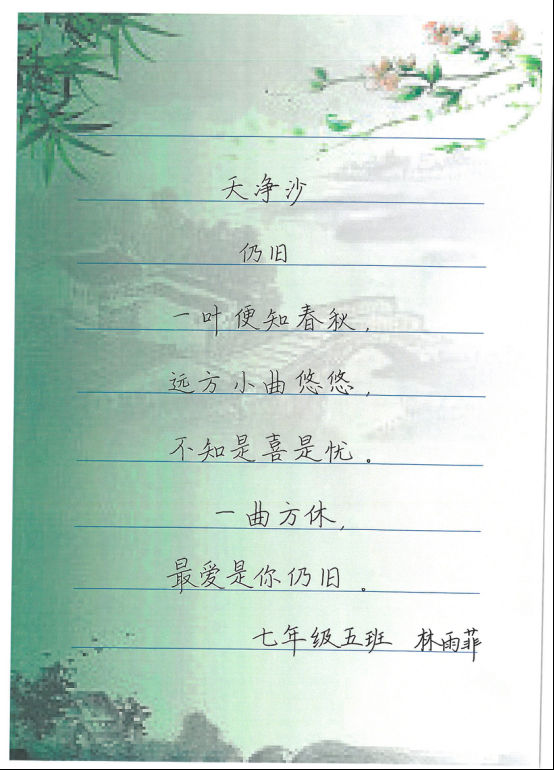 天净沙
仍旧
一叶便知春秋,
远方小曲悠悠,
不知是喜是忧。
一曲方休,
最爱是你仍旧。
七年级五班 林雨菲